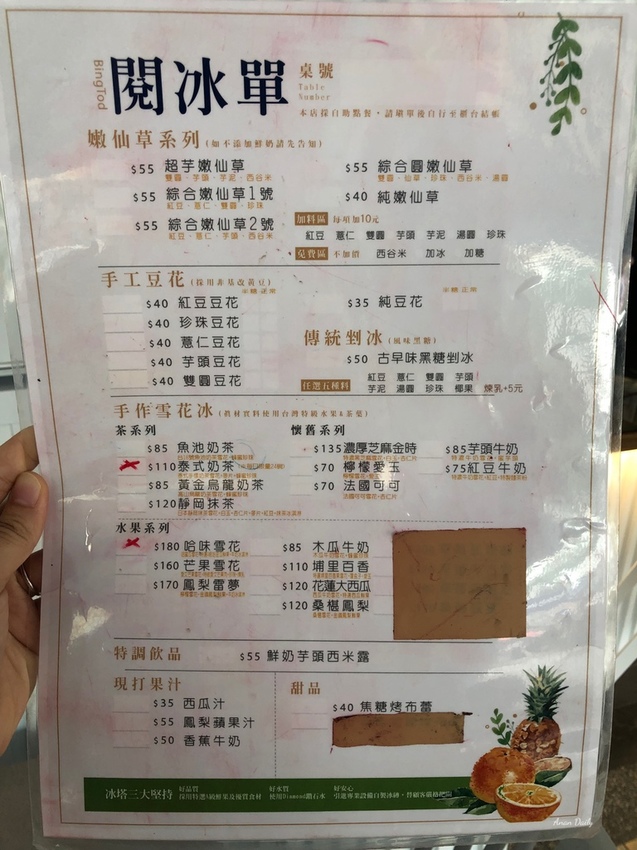 BingTod
閱冰單
桌號
Table
Number
本店採自助點餐，請填單後自行至櫃台結帳
嫩仙草系列 (如不添加鮮奶請先告知)
$55 超芋嫩仙草
雙圓、芋頭、芋泥、西谷米
$55 綜合嫩仙草1號
紅豆、薏仁、雙圓、珍珠
$55 綜合嫩仙草2號
紅豆、薏仁、芋頭、西谷米
$55 綜合圓嫩仙草
雙圓、仙草、珍珠、西谷米、湯圓
$40 純嫩仙草
加料區 每項加10元
紅豆 薏仁 雙圓 芋頭 芋泥 湯圓 珍珠
免費區 不加價 西谷米 加冰 加糖
手工豆花 (採用非基改黃豆)
半糖 正常
$40 紅豆豆花
$40 珍珠豆花
$40 薏仁豆花
$40 芋頭豆花
$40 雙圓豆花
半糖 正常
$35 純豆花
傳統剉冰 (風味黑糖)
$50 古早味黑糖剉冰
任選五種料
紅豆 薏仁 雙圓 芋頭
芋泥 湯圓 珍珠 椰果 煉乳+5元
手作雪花冰 (真材實料使用台灣特級水果&茶葉)
茶系列
$85 魚池奶茶
$110 泰式奶茶
$85 黃金烏龍奶茶
$120 靜岡抹茶
懷舊系列
$135 濃厚芝麻金時
$70 檸檬愛玉
$70 法國可可
$85 芋頭牛奶
$75 紅豆牛奶
水果系列
$180 哈味雪花
$160 芒果雪花
$170 鳳梨雷夢
$85 木瓜牛奶
$110 埔里百香
$120 花蓮大西瓜
$120 桑椹鳳梨
特調飲品
$55 鮮奶芋頭西米露
現打果汁
$35 西瓜汁
$55 鳳梨蘋果汁
$50 香蕉牛奶
甜品
$40 焦糖烤布蕾
冰塔三大堅持
好品質
採用特選A級鮮果及優質食材
好水質
使用Diamond鑽石水
好安心
引進專業設備自製冰磚，替顧客嚴格把關
Anan Daily